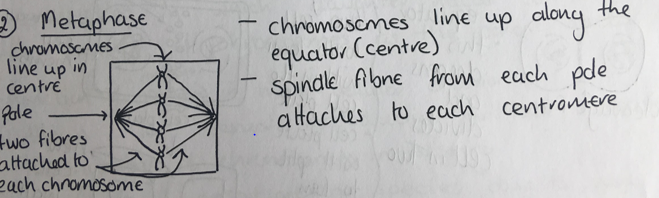 2) Metaphase
chromosomes
line up in
centre
Pole
two fibres
attached to
each chromosome
- chromosomes line up along the
equator (centre)
- spindle fibre from each pole
attaches to each centromere